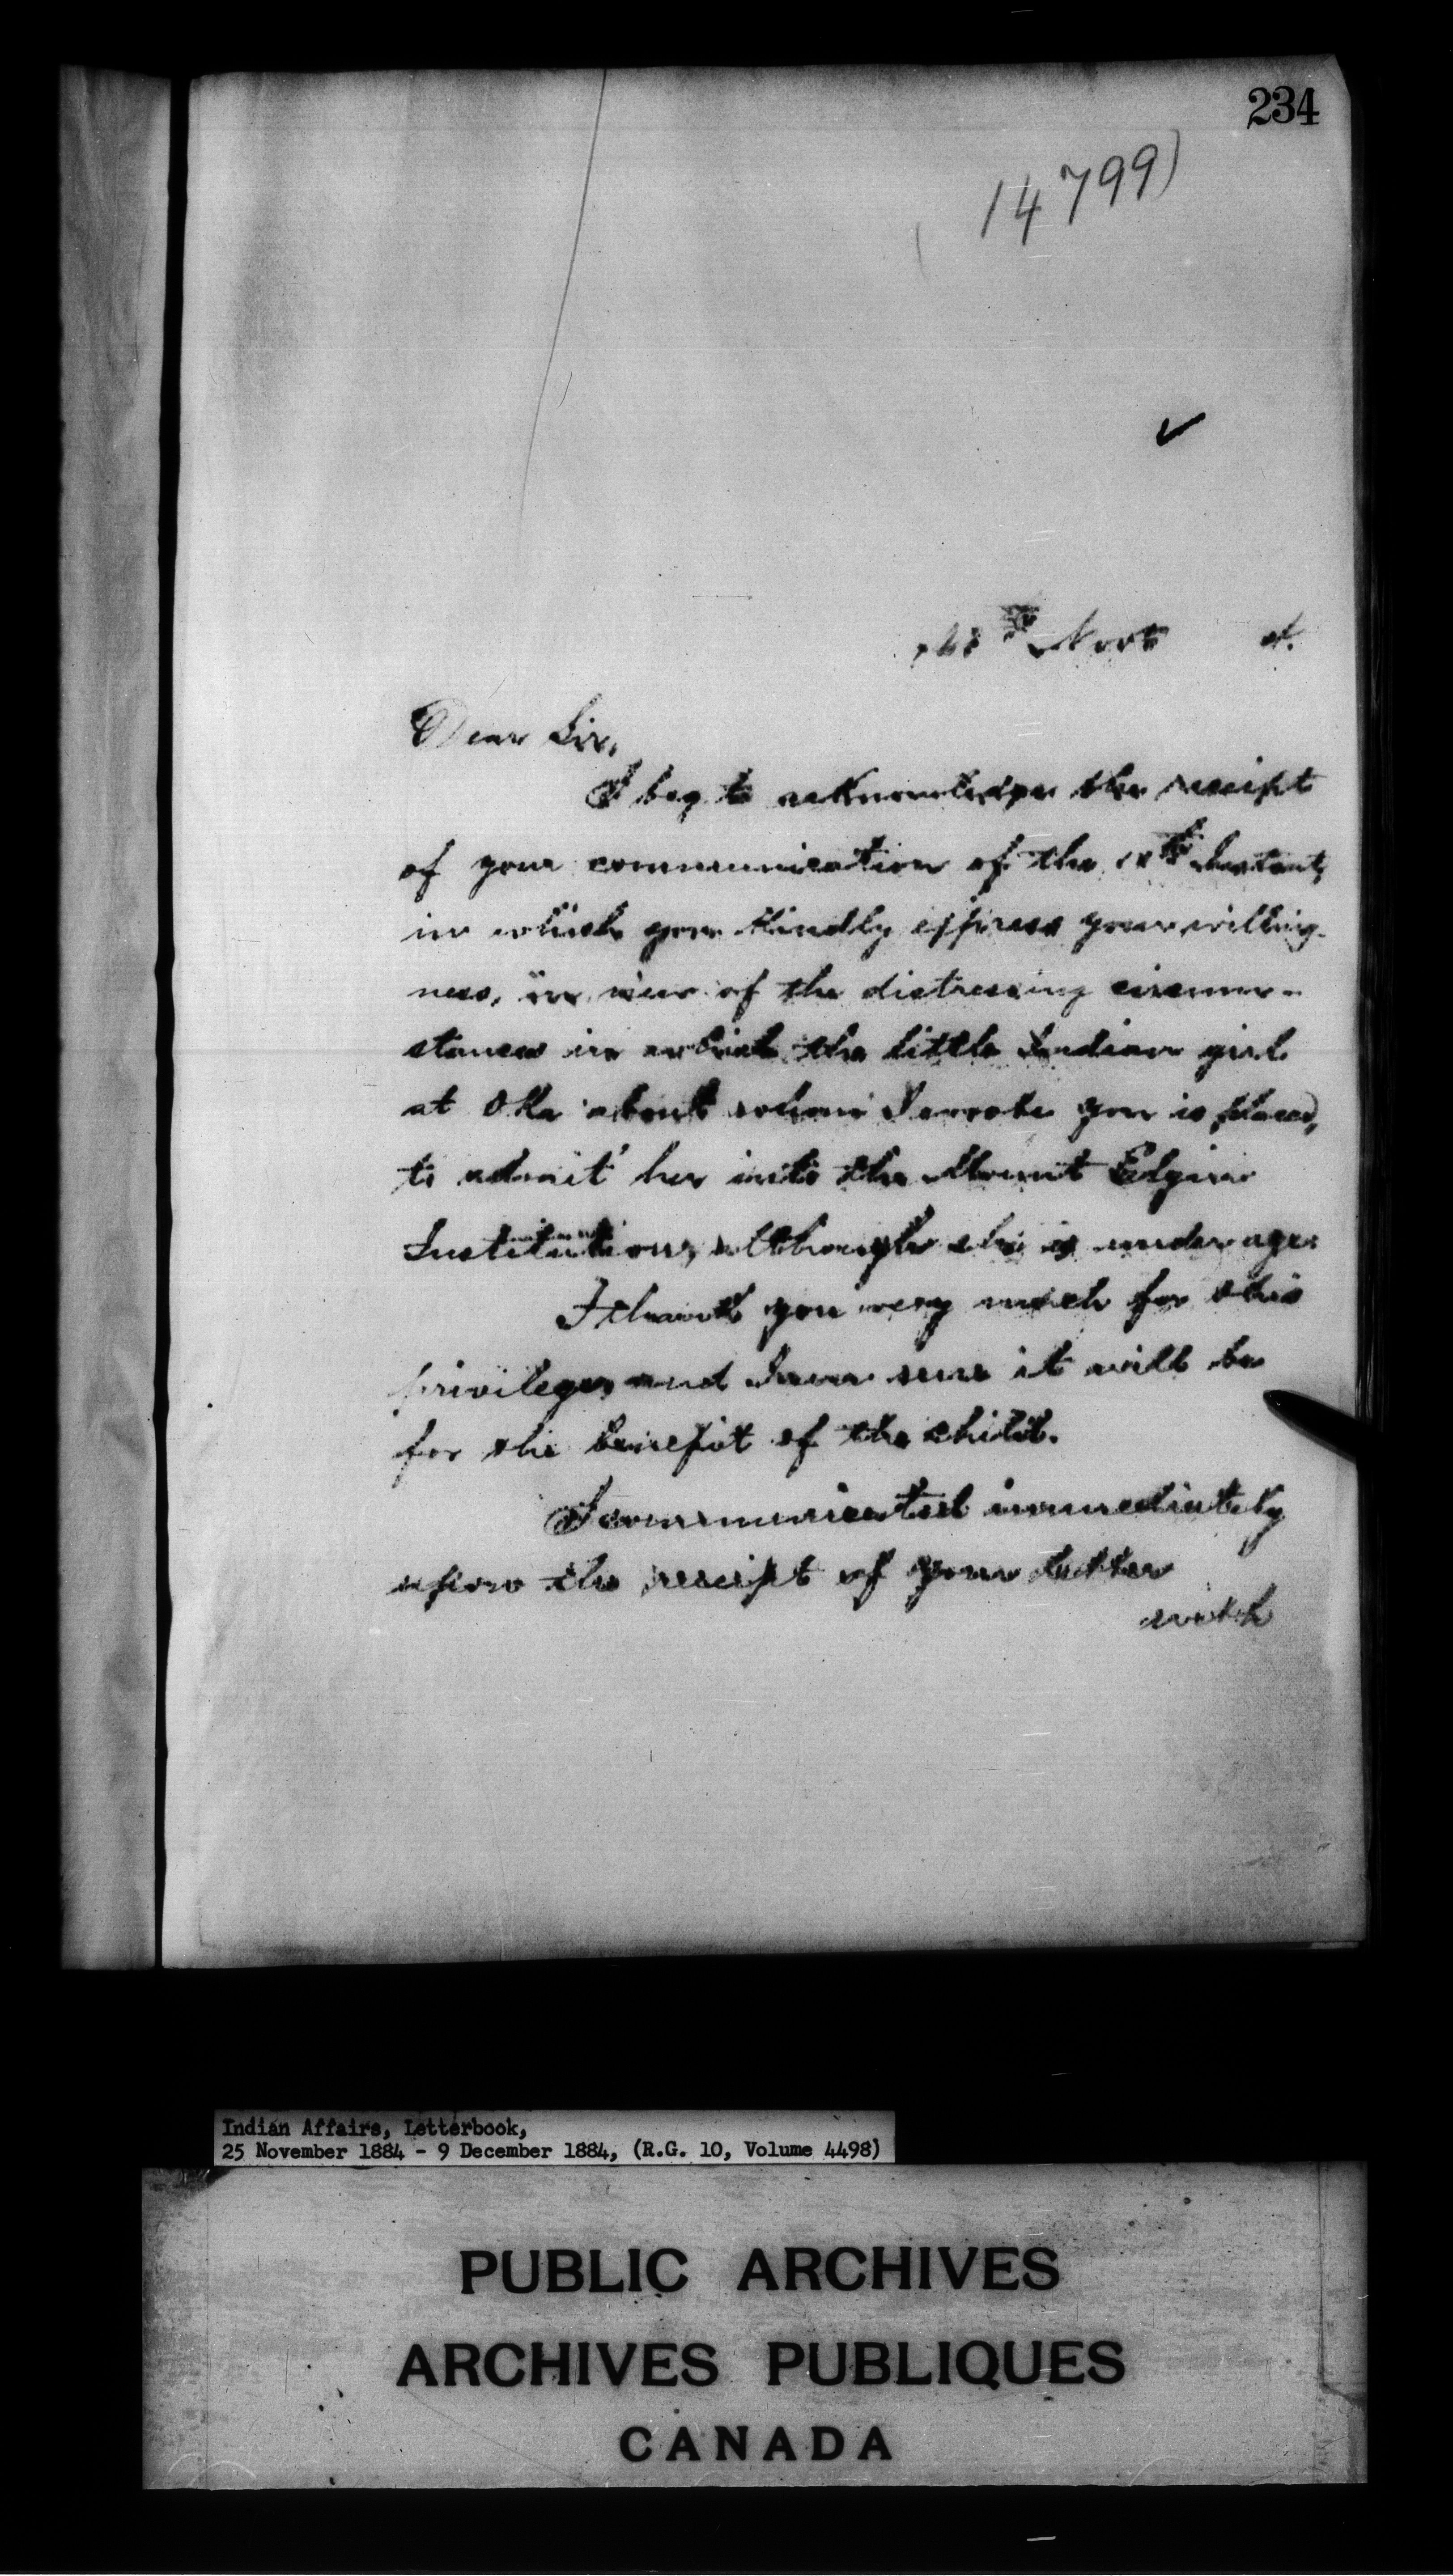 234
14799)
28th Novr 4.
Dear Sir,
I beg to acknowledge the receipt
of your communication of the Instant,
in which you Kindly express your willing-
ness, in view of the distressing circum-
stances in which the little Indian girl
at Oka about whom I wrote you is placed,
to admit her into the Mount Elgin
Institution, although she is under age.
I thank you very much for this
privilege, and I am sure it will be
for the benefit of the child.
I communicated immediately
upon the receipt of your letter
with
Indian Affairs, Letterbook,
25 November 1884 - 9 December 1884, (R.G. 10, Volume 4498)
PUBLIC ARCHIVES
ARCHIVES PUBLIQUES
CANADA